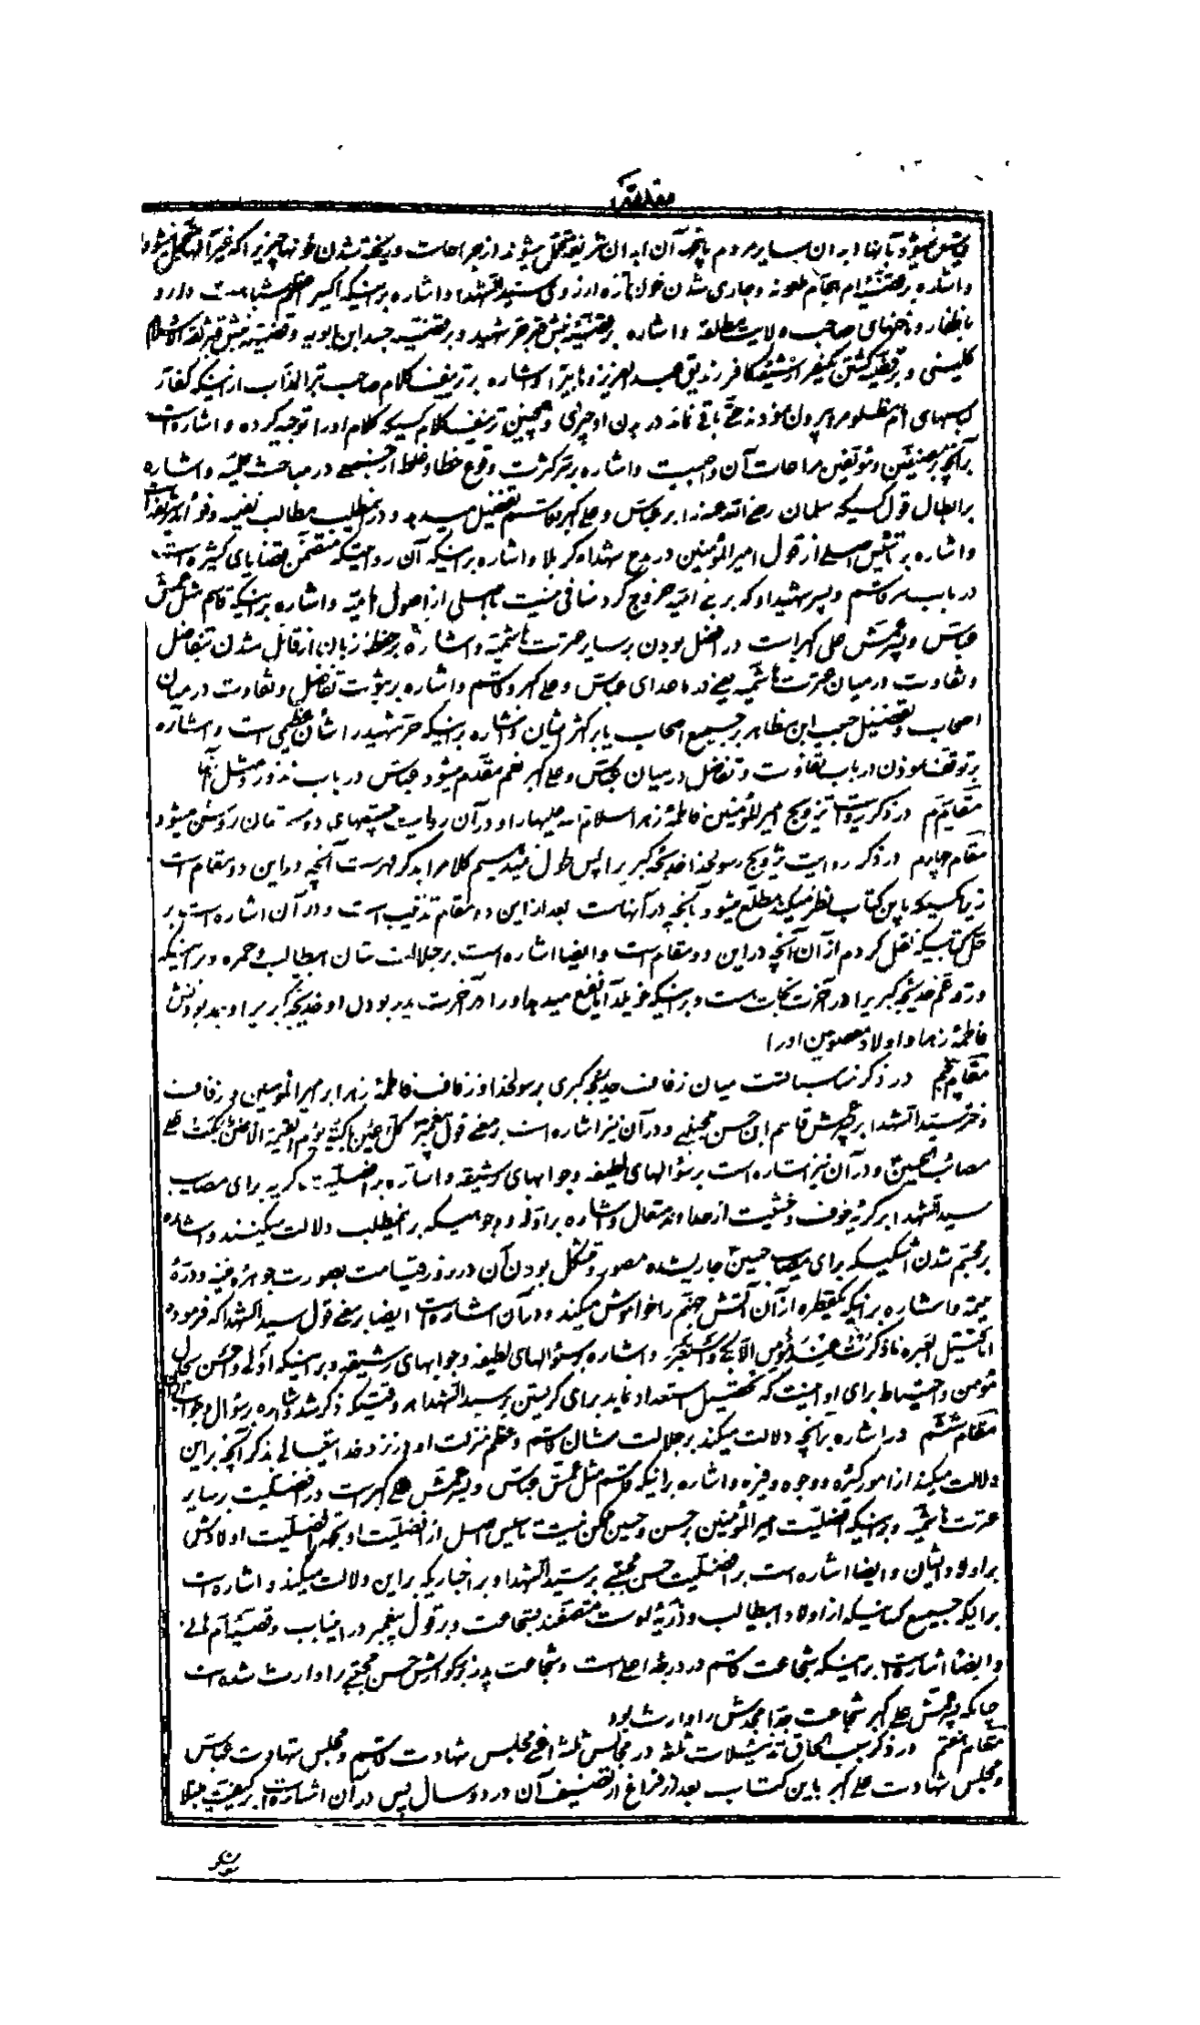 مقدمه
و اشاره بر قضیه ایام و جاری شدن خون تازه از روی سید الشهدا و اشاره بر اینکه اکسیر احمر مشابهت دارد
باظفار و ناخنهای صاحب ولایت مطلقه و اشاره بر قضیه نبش قبر حر شهید و بر قضیه جسد ابن بابویه و قضیه نبش قبر ثقة الاسلام
کلینی و بر قضیه کشتن کافر زندیق عبد العزیز و اشاره بر تزییف کلام صاحب از اینکه کفار
لباسهای امام مظلوم را بیرون نمودند حتی باقی نماند در بدن او چیزی و همچنین تزییف کلام کسیکه کلام او را توجیه کرده و اشاره است
برآنچه بر مصنفین و مؤلفین مراعات آن واجبست و اشاره بر کثرت وقوع خطا و غلط از جمعی در مباحث علمیه و اشاره
بر ابطال قول کسیکه سلمان رضی الله عنه را بر عباس و علی اکبر و قاسم تفضیل میدهد و در این مطلب مطالب نفیسه و فوائد شریفه است
و اشاره بر تأسیس اصلی از قول امیر المؤمنین در مدح شهداء کربلا و اشاره بر اینکه آن روایتیکه متضمن قضایای کثیره است
در باب قاسم و پسر شهید او که بر بنی امیه خروج کرد منافی نیست با اصلی از اصول امامیه و اشاره بر اینکه قاسم مثل عمش
عباس و پسر عمش علی اکبر است در افضل بودن بر سایر عترت هاشمیه و اشاره بر حفظ زبان از قائل شدن بتفاضل
و تفاوت در میان عترت هاشمیه یعنی در ماعدای عباس و علی اکبر و قاسم و اشاره بر ثبوت تفاضل و تفاوت در میان
اصحاب و تفضیل حبیب ابن مظاهر بر جمیع اصحاب یا بر اکثر ایشان و اشاره بر اینکه حر شهید را شأن عظیمی است و اشاره
بر توقف نمودن در باب تفاوت و تفاضل در میان عباس و علی اکبر نعم مقدم میشود عباس در باب نذور و مثل آنها
مقام سیم در ذکر روایت تزویج امیر المؤمنین فاطمه زهرا سلام الله علیها را و در آن روایت چشمهای دوستان روشن میشود
مقام چهارم در ذکر روایت تزویج رسولخدا خدیجه کبری را پس طول نمیدهیم کلام را بذکر فهرست آنچه در این دو مقام است
زیرا کسیکه باین کتاب نظر میکند مطلع میشود بآنچه در آنهاست بعد از این دو مقام تذنیب است و در آن اشاره است بر
حال کتابیکه نقل کردم از آن آنچه در این دو مقام است و ایضا اشاره است بر جلالت شان ابیطالب و حمزه و بر اینکه
ورقه عم خدیجه کبری را در آخرت نجات است و بر اینکه خویلد آیا نفع میدهد او را در آخرت پدر بودن او خدیجه کبری را و جد بودنش
فاطمه زهرا و اولاد معصومین او را
مقام پنجم در ذکر مناسبات میان زفاف خدیجه کبری برسولخدا و زفاف فاطمه زهرا بر امیر المؤمنین و زفاف
دختر سید الشهدا بر پسر عمش قاسم ابن حسن مجتبی و در آن نیز اشاره است بر معنی قول پیغمبر کل عین باکیة یوم القیمة الا عین بکت علی
مصائب الحسین و در آن نیز اشاره است بر سؤالهای لطیفه و جوابهای رشیقه و اشاره بر افضلیت گریه برای مصایب
سید الشهدا بر گریه خوف و خشیت از خداوند متعال و اشاره بر ادله و وجوهیکه بر اینمطلب دلالت میکنند و اشاره
بر مجسم شدن اشکیکه برای مصایب حسین جاری شده مصور و متشکل بودن آن در روز قیامت بصورت جوهره ثمینه و دره
یتیمه و اشاره بر اینکه یکقطره از آن آتش جهنم را خواموش میکند و در آن اشاره است ایضا بر معنی قول سید الشهدا که فرموده
انا قتیل العبرة ما ذکرت عند مؤمن الا بکی و استعبر و اشاره بر سؤالهای لطیفه و جوابهای رشیقه و بر اینکه اولی و احسن بحال
مؤمن و احتیاط برای او اینست که تحصیل استعداد نماید برای گریستن بر سید الشهدا هر وقتیکه ذکر شد و اشاره بر سؤال و جواب
مقام ششم در اشاره بآنچه دلالت میکند بر جلالت شان قاسم و عظم منزلت او در نزد خدایتعالی بذکر آنچه بر این
دلالت میکند از امور کثیره و وجوه وفیره و اشاره بر اینکه قاسم مثل عمش عباس و پسر عمش علی اکبر است در افضلیت بر سایر
عترت هاشمیه و بر اینکه افضلیت امیر المؤمنین بر حسن و حسین ممکن نیست تأسیس اصل از افضلیت او بجهة افضلیت اولادش
بر اولاد ایشان و ایضا اشاره است بر افضلیت حسن مجتبی بر سید الشهدا و بر اخباریکه بر این دلالت میکند و اشاره است
بر اینکه جمیع کسانیکه از اولاد ابیطالب و ذریه اوست متصفند بشجاعت و بر قول پیغمبر در اینباب و قضیه ام هانی
و ایضا اشاره است بر اینکه شجاعت قاسم در درجه اعلی است و شجاعت پدر بزرگوارش حسن مجتبی را وارث شده است
چنانکه پسر عمش علی اکبر شجاعت جد امجدش را وارث بود
مقام هفتم در ذکر سبب الحاق تذییلات ثلثه در مجالس ثلثه اعنی مجلس شهادت قاسم و مجلس شهادت عباس
و مجلس شهادت علی اکبر باین کتاب بعد از فراغ از تصنیف آن در دو سال پس در آن اشاره است بر کیفیت مبتلا